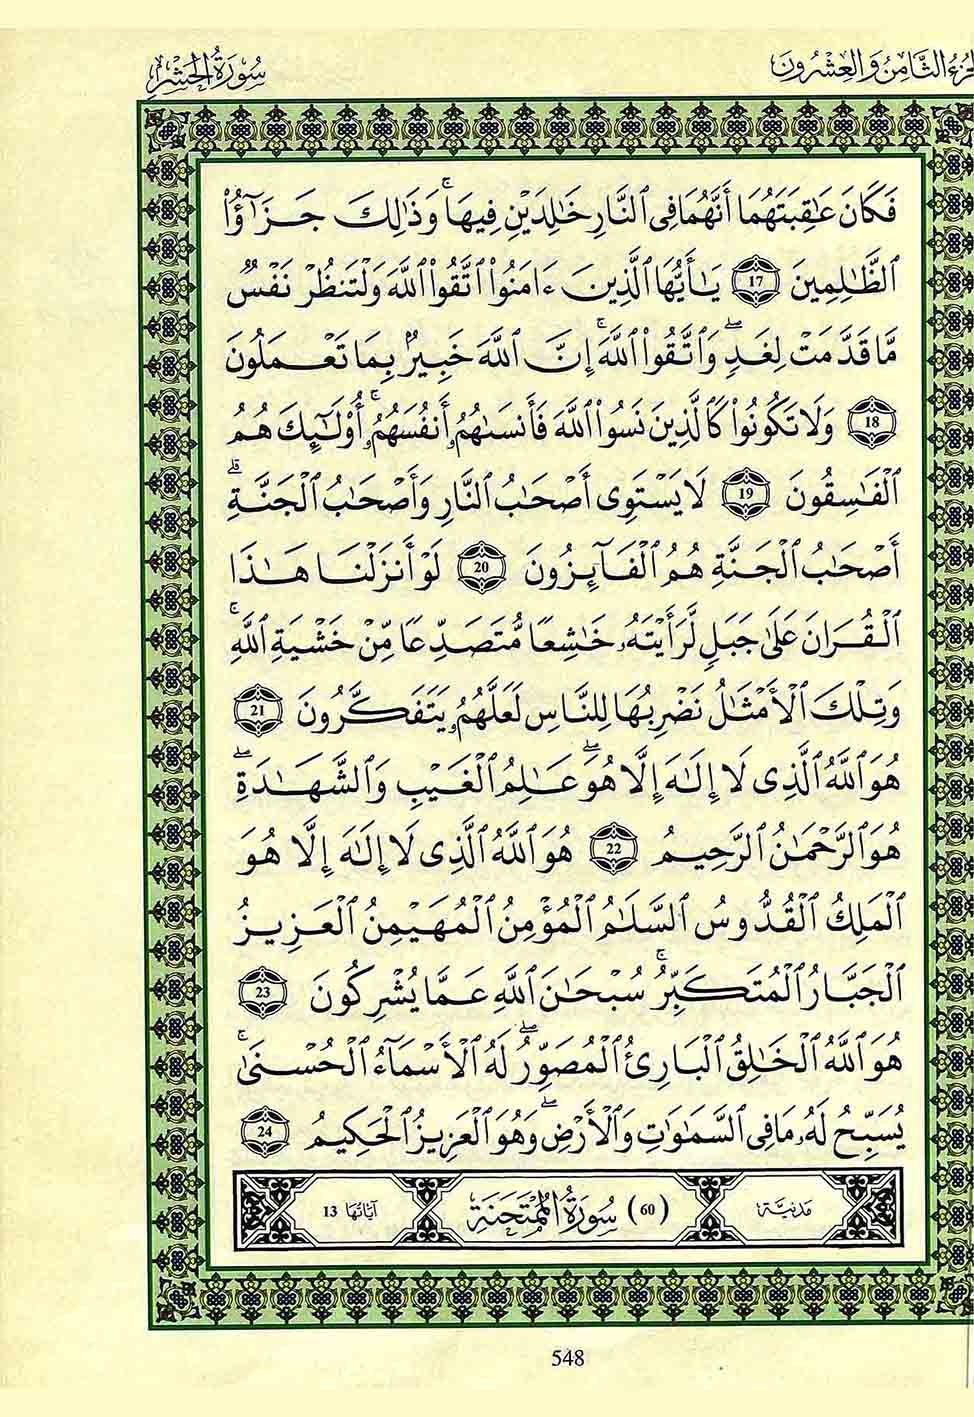 الجزء الثامن والعشرون
سورة الحشر
فَكَانَ عَٰقِبَتَهُمَا أَنَّهُمَا فِى ٱلنَّارِ خَٰلِدَيْنِ فِيهَا ۚ وَذَٰلِكَ جَزَٰٓؤُا۟
ٱلظَّٰلِمِينَ 17 يَٰٓأَيُّهَا ٱلَّذِينَ ءَامَنُوا۟ ٱتَّقُوا۟ ٱللَّهَ وَلْتَنظُرْ نَفْسٌ
مَّا قَدَّمَتْ لِغَدٍ ۖ وَٱتَّقُوا۟ ٱللَّهَ ۚ إِنَّ ٱللَّهَ خَبِيرٌۢ بِمَا تَعْمَلُونَ
18 وَلَا تَكُونُوا۟ كَٱلَّذِينَ نَسُوا۟ ٱللَّهَ فَأَنسَىٰهُمُۥٓ أَنفُسَهُمُۥٓ ۚ أُو۟لَٰٓئِكَ هُمُ
ٱلْفَٰسِقُونَ 19 لَا يَسْتَوِىٓ أَصْحَٰبُ ٱلنَّارِ وَأَصْحَٰبُ ٱلْجَنَّةِ ۚ
أَصْحَٰبُ ٱلْجَنَّةِ هُمُ ٱلْفَآئِزُونَ 20 لَوْ أَنزَلْنَا هَٰذَا
ٱلْقُرَانَ عَلَىٰ جَبَلٍ لَّرَأَيْتَهُۥ خَٰشِعًا مُّتَصَدِّعًا مِّنْ خَشْيَةِ ٱللَّهِ ۚ
وَتِلْكَ ٱلْأَمْثَٰلُ نَضْرِبُهَا لِلنَّاسِ لَعَلَّهُمُۥ يَتَفَكَّرُونَ 21
هُوَ ٱللَّهُ ٱلَّذِى لَآ إِلَٰهَ إِلَّا هُوَ ۖ عَٰلِمُ ٱلْغَيْبِ وَٱلشَّهَٰدَةِ ۖ
هُوَ ٱلرَّحْمَٰنُ ٱلرَّحِيمُ 22 هُوَ ٱللَّهُ ٱلَّذِى لَآ إِلَٰهَ إِلَّا هُوَ
ٱلْمَلِكُ ٱلْقُدُّوسُ ٱلسَّلَٰمُ ٱلْمُؤْمِنُ ٱلْمُهَيْمِنُ ٱلْعَزِيزُ
ٱلْجَبَّارُ ٱلْمُتَكَبِّرُ ۚ سُبْحَٰنَ ٱللَّهِ عَمَّا يُشْرِكُونَ 23
هُوَ ٱللَّهُ ٱلْخَٰلِقُ ٱلْبَارِئُ ٱلْمُصَوِّرُ ۖ لَهُ ٱلْأَسْمَآءُ ٱلْحُسْنَىٰ ۚ
يُسَبِّحُ لَهُۥ مَا فِى ٱلسَّمَٰوَٰتِ وَٱلْأَرْضِ ۖ وَهُوَ ٱلْعَزِيزُ ٱلْحَكِيمُ 24
مدنية (60) سورة الممتحنة آياتها 13
548